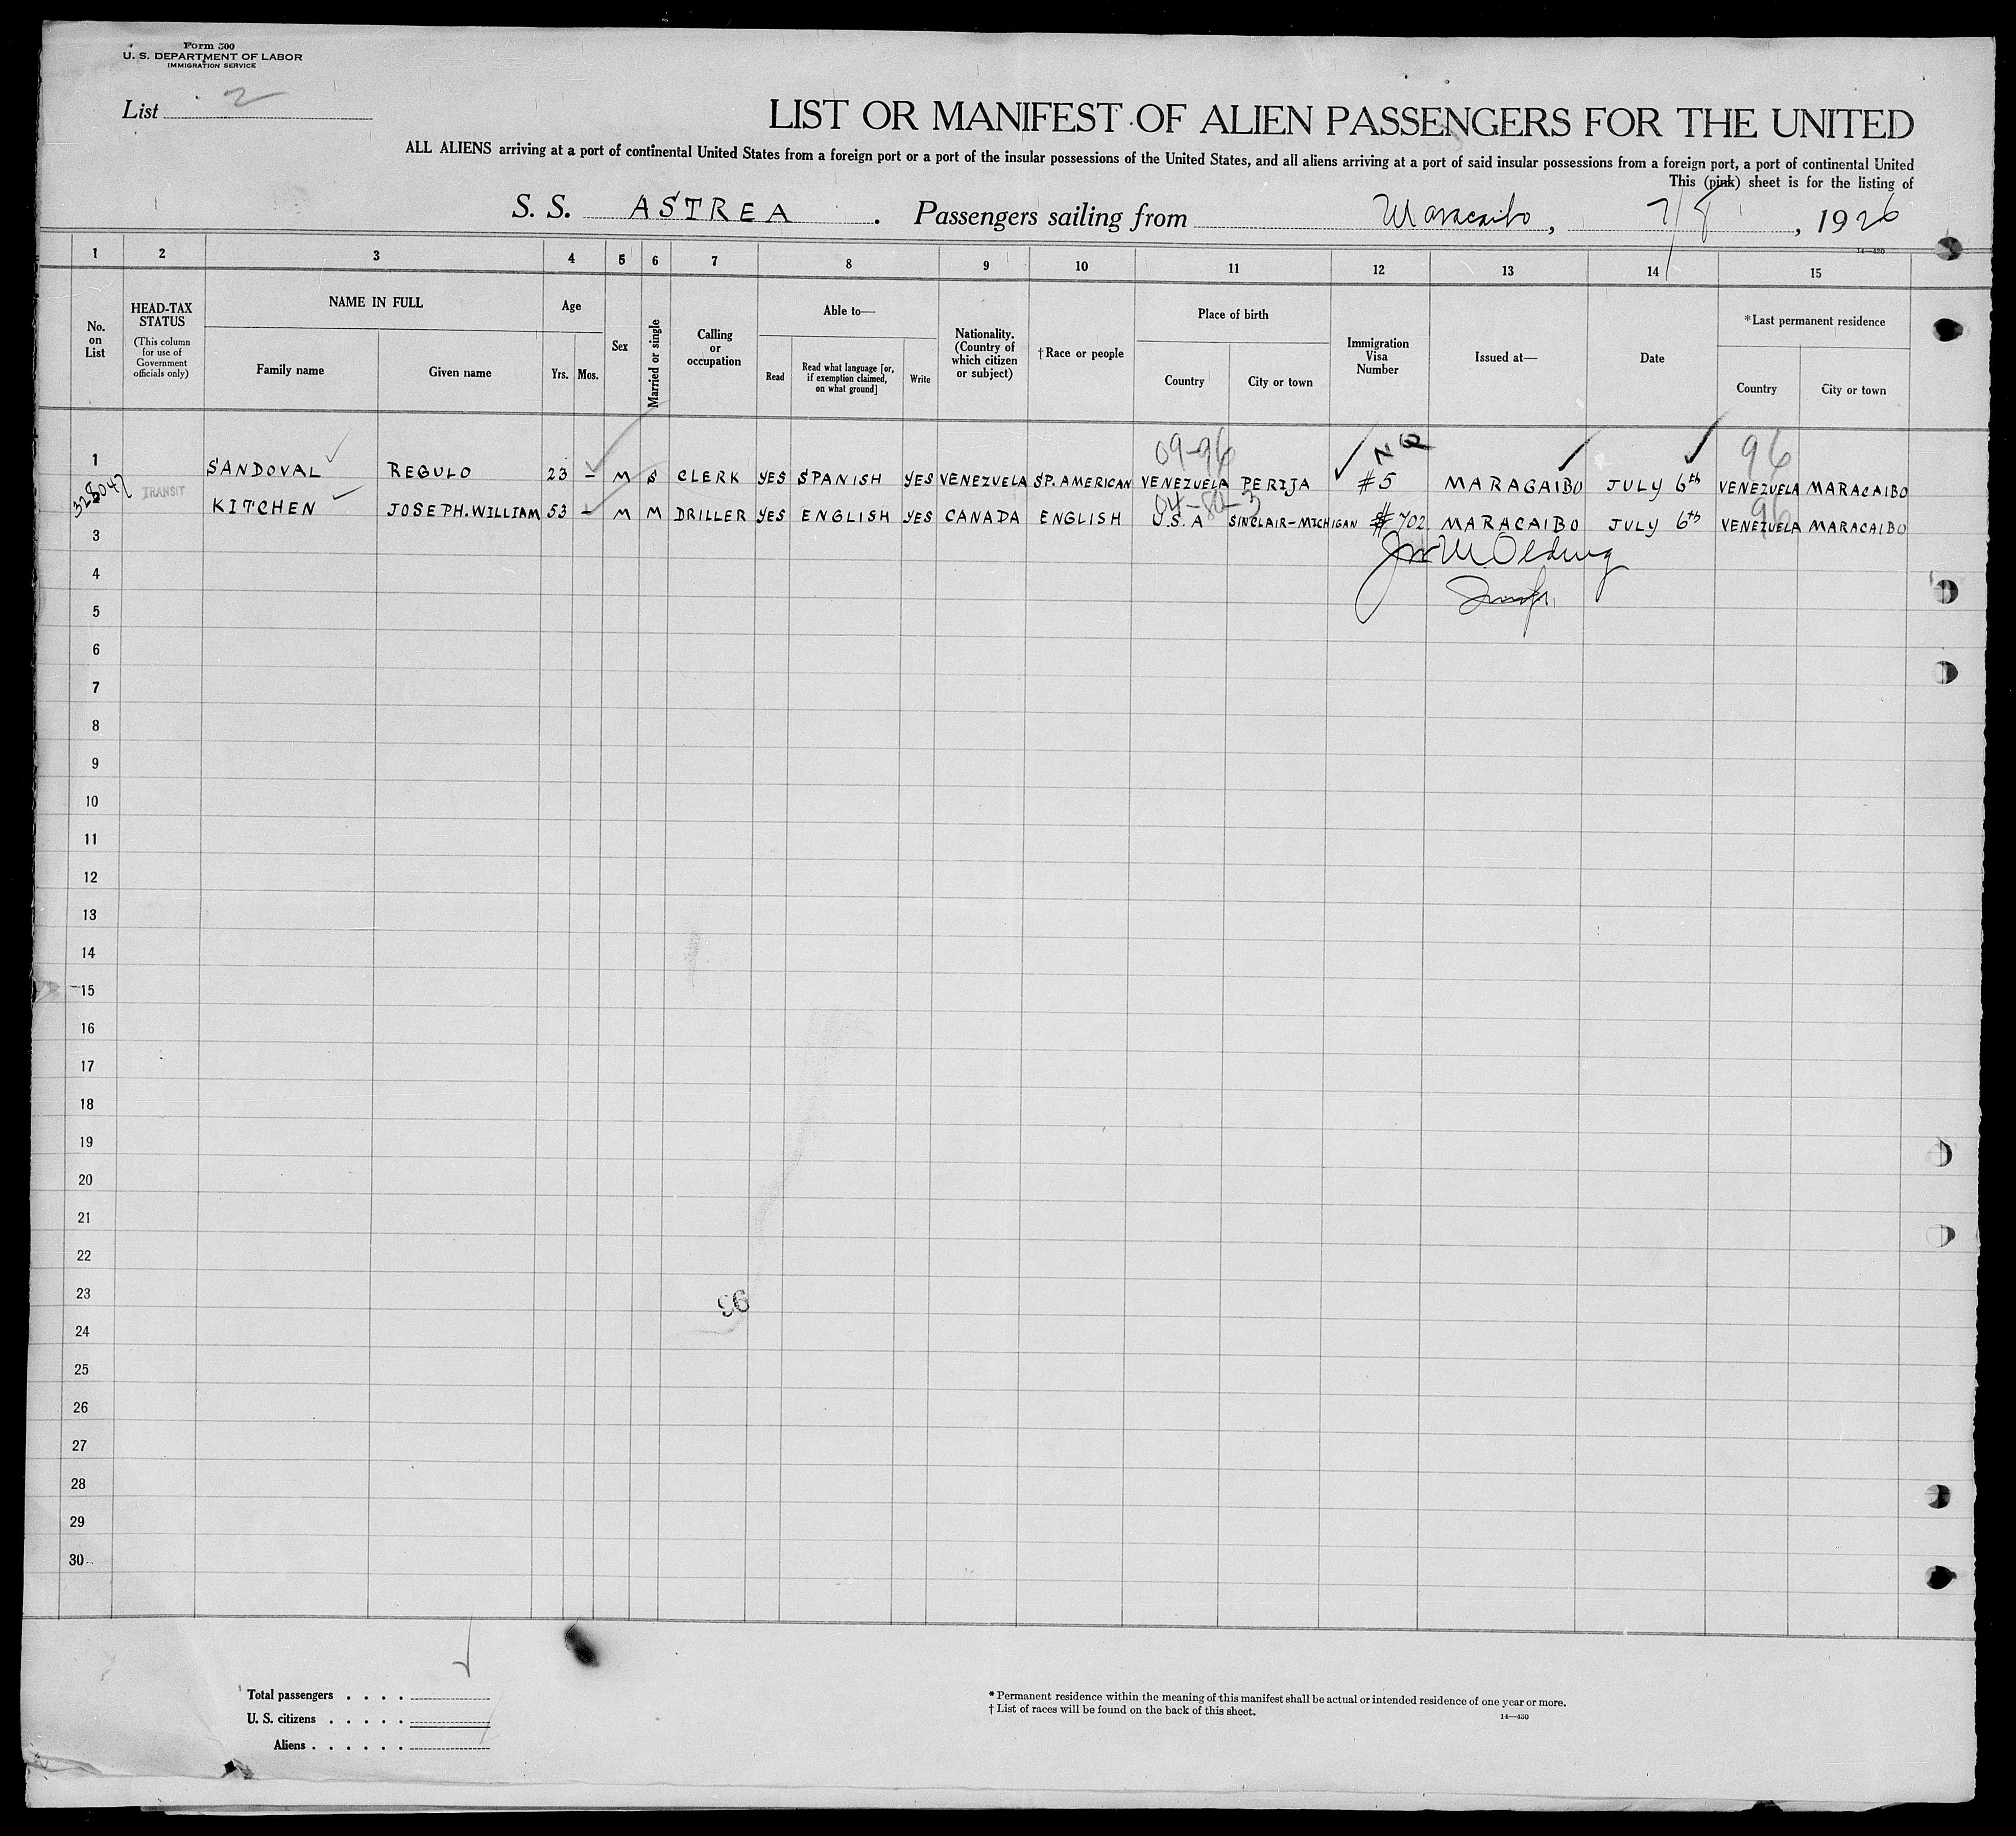 Form 500
U. S. DEPARTMENT OF LABOR
IMMIGRATION SERVICE
List 2
LIST OR MANIFEST OF ALIEN PASSENGERS FOR THE UNITED
ALL ALIENS arriving at a port of continental United States from a foreign port or a port of the insular possessions of the United States, and all aliens arriving at a port of said insular possessions from a foreign port, a port of continental United
This (pink) sheet is for the listing of
S. S. ASTREA . Passengers sailing from Maracaibo, 7/8, 1926
14—430
1 2 3 4 5 6 7 8 9 10 11 12 13 14 15
No. on List
HEAD-TAX STATUS
(This column for use of Government officials only)
NAME IN FULL
Family name
Given name
Age
Yrs. Mos.
Sex
Married or single
Calling or occupation
Able to—
Read
Read what language [or, if exemption claimed, on what ground]
Write
Nationality. (Country of which citizen or subject)
†Race or people
Place of birth
Country
City or town
Immigration Visa Number
Issued at—
Date
*Last permanent residence
Country
City or town
09-96 NQ 96
1 SANDOVAL REGULO 23 – M S CLERK YES SPANISH YES VENEZUELA SP. AMERICAN VENEZUELA PERIJA #5 MARAGAIBO JULY 6th VENEZUELA MARACAIBO
328047 TRANSIT KITCHEN JOSEPH.WILLIAM 53 – M M DRILLER YES ENGLISH YES CANADA ENGLISH U.S.A SINCLAIR-MICHIGAN #702 MARACAIBO JULY 6th VENEZUELA MARACAIBO
96
3
4
5
6
7
8
9
10
11
12
13
14
15
16
17
18
19
20
21
22
23
96
24
25
26
27
28
29
30
Total passengers . . . .
U. S. citizens . . . . .
Aliens . . . . . .
* Permanent residence within the meaning of this manifest shall be actual or intended residence of one year or more.
† List of races will be found on the back of this sheet.
14—430